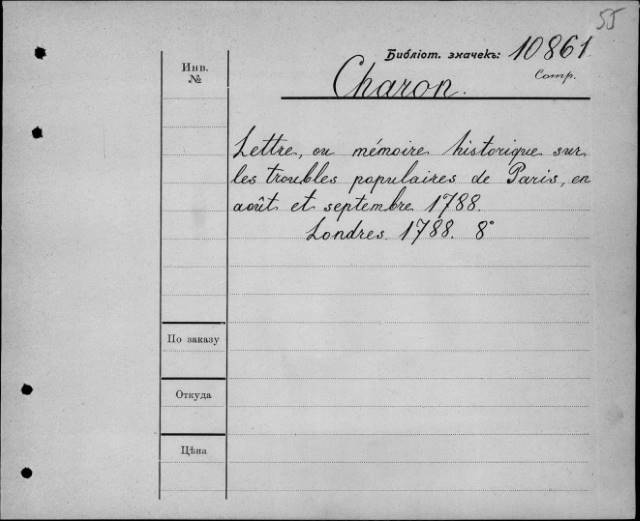 55
Библіот. значекъ: 10861
Comp.
Инв.
№
Charon.
Lettre, ou mémoire historique sur
les troubles populaires de Paris, en
août et septembre 1788.
Londres. 1788. 8°
По заказу
Откуда
Цѣна